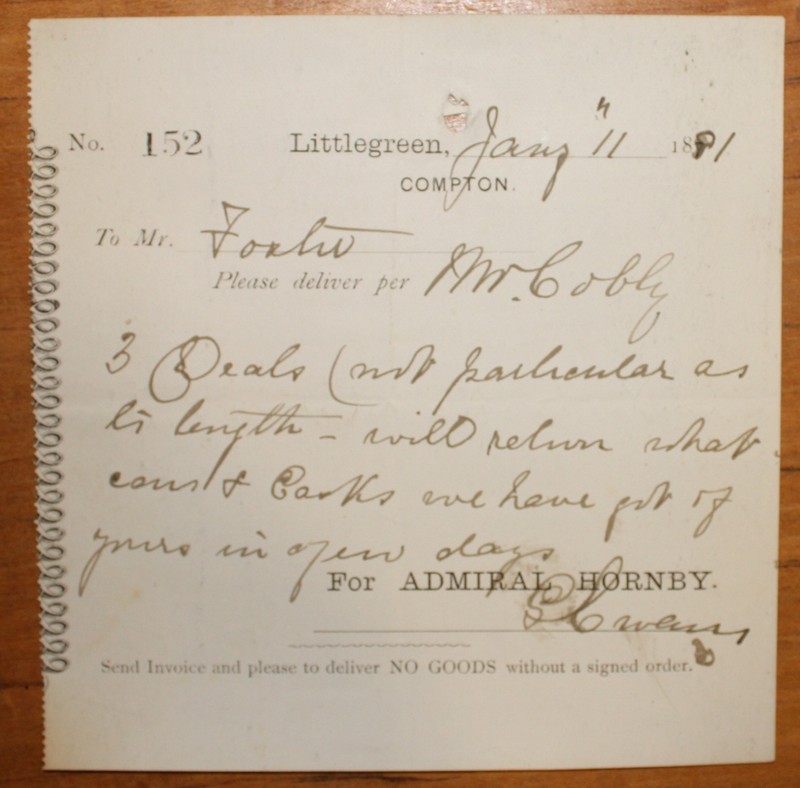 No. 152 Littlegreen, Jany 11 1881
COMPTON.
To Mr. Foster
Please deliver per Mr. Cobby
3 Deals (not particular as
to length – will return what
cans & Casks we have got of
yours in a few days
For ADMIRAL HORNBY.
Evans
Send Invoice and please to deliver NO GOODS without a signed order.